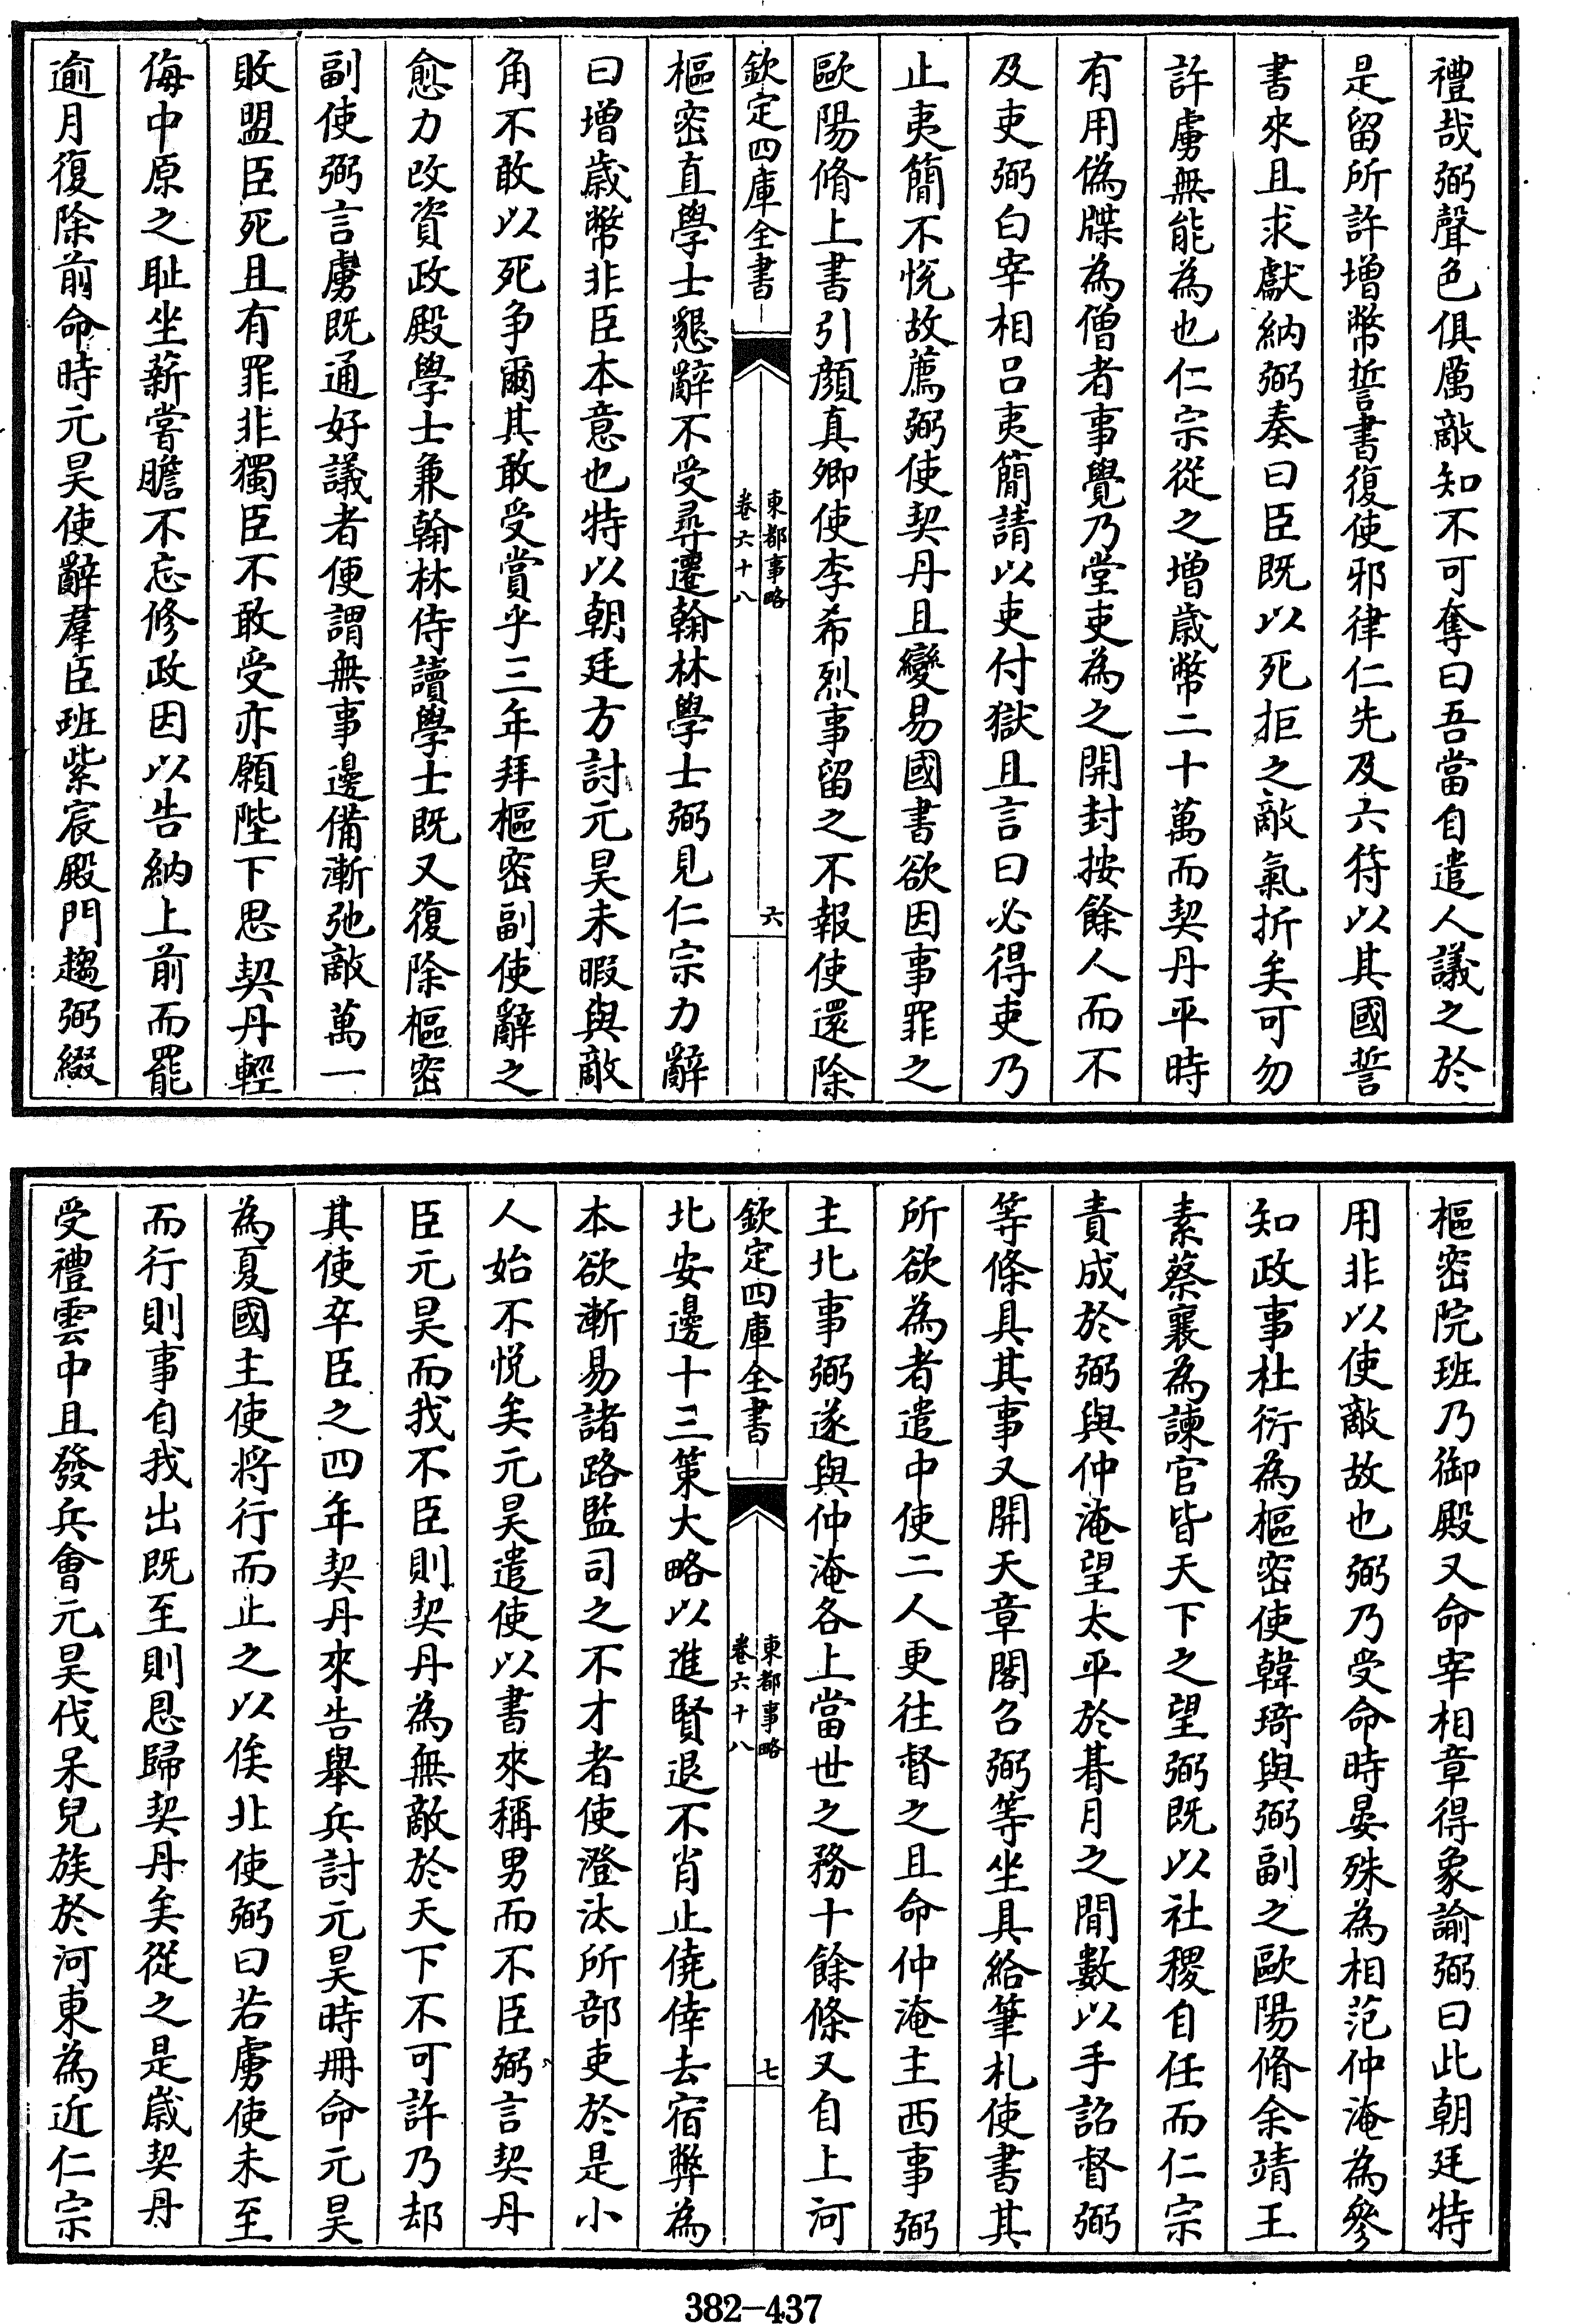 禮哉弼聲色俱厲敵知不可奪曰吾當自遣人議之於
是留所許增幣誓書復使邪律仁先及六符以其國誓
書來且求獻納弼奏曰臣既以死拒之敵氣折矣可勿
許虜無能為也仁宗從之增歲幣二十萬而契丹平時
有用偽牒為僧者事覺乃堂吏為之開封按餘人而不
及吏弼白宰相呂夷簡請以吏付獄且言曰必得吏乃
止夷簡不悅故薦弼使契丹且變易國書欲因事罪之
歐陽脩上書引顏真卿使李希烈事留之不報使還除
欽定四庫全書
東都事略
卷六十八
六
樞密直學士懇辭不受尋遷翰林學士弼見仁宗力辭
曰增歲幣非臣本意也特以朝廷方討元昊未暇與敵
角不敢以死争爾其敢受賞乎三年拜樞密副使辭之
愈力改資政殿學士兼翰林侍讀學士既又復除樞密
副使弼言虜既通好議者便謂無事邊備漸弛敵萬一
敗盟臣死且有罪非獨臣不敢受亦願陛下思契丹輕
侮中原之恥坐薪嘗膽不忘修政因以告納上前而罷
逾月復除前命時元昊使辭羣臣班紫宸殿門趨弼綴
樞密院班乃御殿又命宰相章得象諭弼曰此朝廷特
用非以使敵故也弼乃受命時晏殊為相范仲淹為參
知政事杜衍為樞密使韓琦與弼副之歐陽脩余靖王
素蔡襄為諫官皆天下之望弼既以社稷自任而仁宗
責成於弼與仲淹望太平於朞月之間數以手詔督弼
等條具其事又開天章閣召弼等坐具給筆札使書其
所欲為者遣中使二人更往督之且命仲淹主西事弼
主北事弼遂與仲淹各上當世之務十餘條又自上河
欽定四庫全書
東都事略
卷六十八
七
北安邊十三策大略以進賢退不肖止僥倖去宿弊為
本欲漸易諸路監司之不才者使澄汰所部吏於是小
人始不悅矣元昊遣使以書來稱男而不臣弼言契丹
臣元昊而我不臣則契丹為無敵於天下不可許乃却
其使卒臣之四年契丹來告舉兵討元昊時冊命元昊
為夏國主使將行而止之以俟北使弼曰若虜使未至
而行則事自我出既至則恩歸契丹矣從之是歲契丹
受禮雲中且發兵會元昊伐呆兒族於河東為近仁宗
382-437